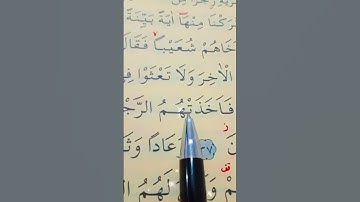 رَكْنَا مِنْهَٓا اٰيَةً بَيِّنَةً
خَاهُمْ شُعَيْباً فَقَالَ
الْاٰخِرَ وَلَا تَعْثَوْا فِ
فَاَخَذَتْهُمُ الرَّجْ
نَ ٣٧ وَعَاداً وَثَ
قف
مْ لَهُمُ